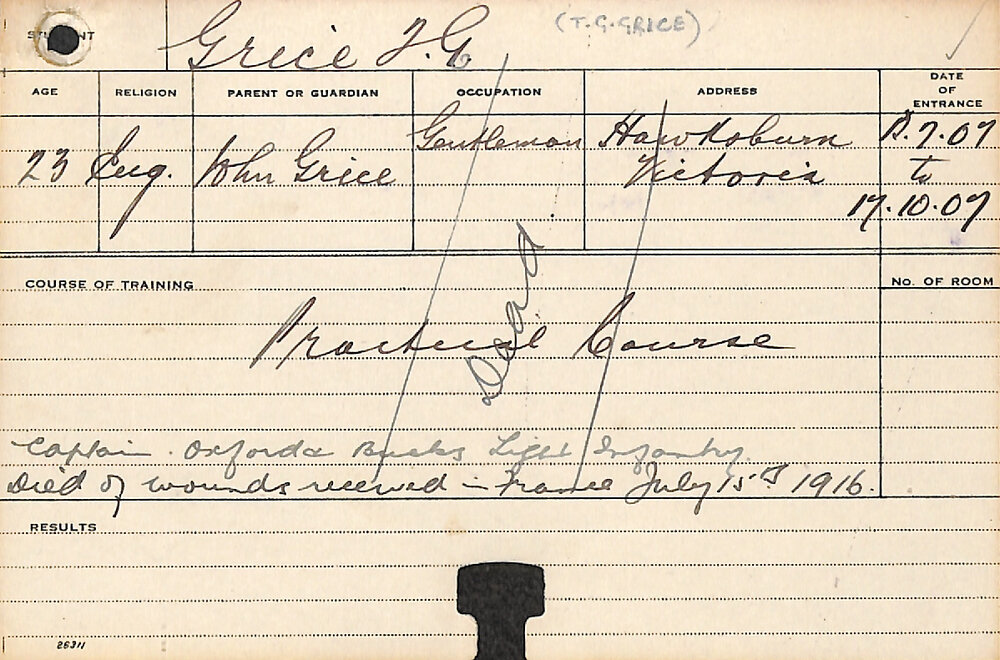 STUDENT
Grice T. G. (T. G. GRICE)
AGE RELIGION PARENT OR GUARDIAN OCCUPATION ADDRESS DATE OF ENTRANCE
23 Eng. John Grice Gentleman Hawksburn
Victoria
.7.07
to
17.10.07
COURSE OF TRAINING No. OF ROOM
Practical Course
Dead
Captain. Oxford & Bucks Light Infantry.
Died of wounds received in France July 15th 1916.
RESULTS
26311